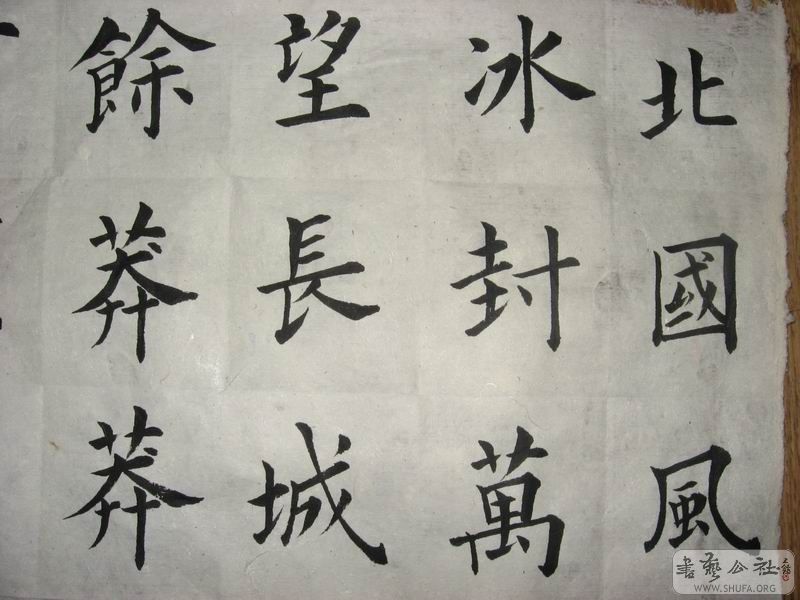 北國風
冰封萬
望長城
餘莽莽
書藝公社
WWW.SHUFA.ORG